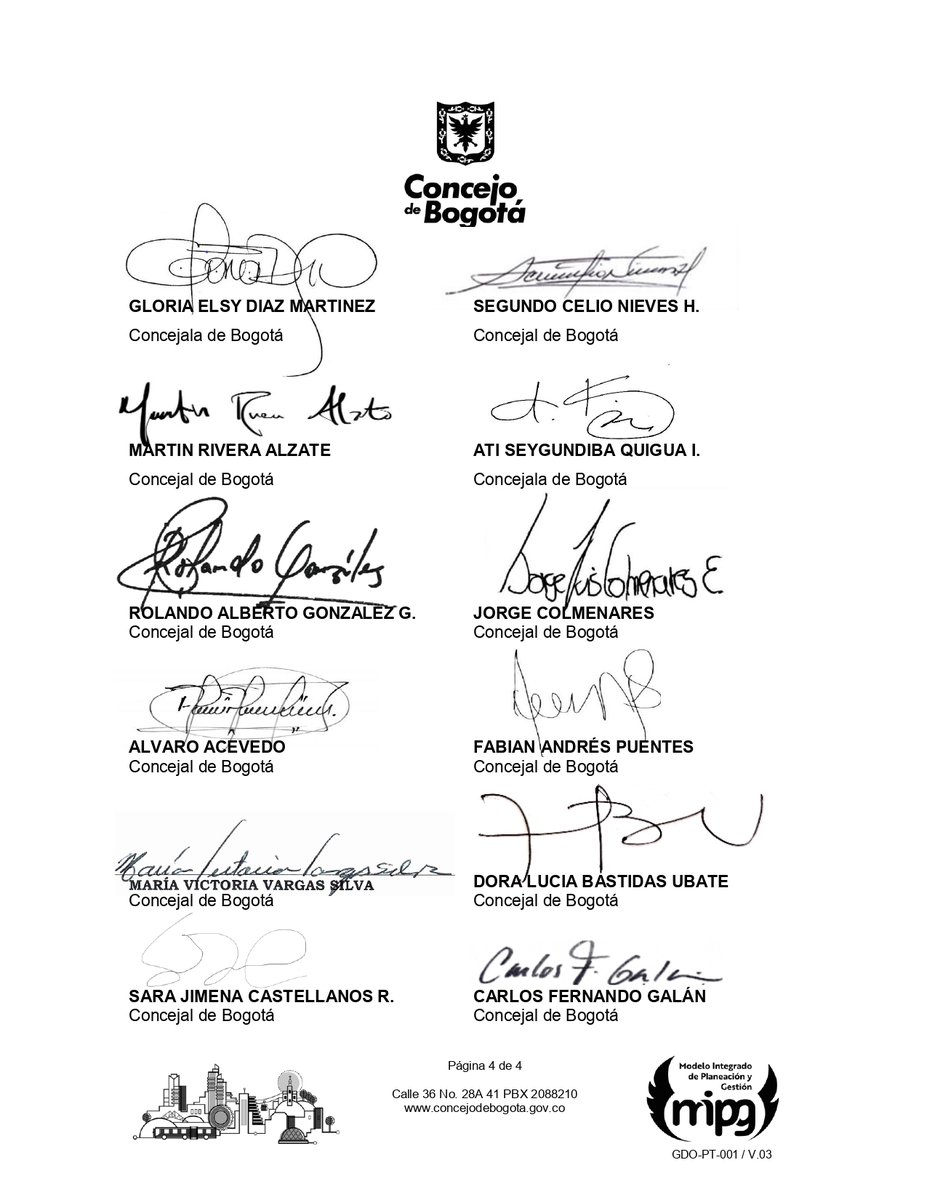 Concejo
de Bogotá
GLORIA ELSY DIAZ MARTINEZ
Concejala de Bogotá
SEGUNDO CELIO NIEVES H.
Concejal de Bogotá
Martin Rivera Alzate
MARTIN RIVERA ALZATE
Concejal de Bogotá
ATI SEYGUNDIBA QUIGUA I.
Concejala de Bogotá
Rolando González
ROLANDO ALBERTO GONZALEZ G.
Concejal de Bogotá
Jorge Luis Colmenares E
JORGE COLMENARES
Concejal de Bogotá
ALVARO ACEVEDO
Concejal de Bogotá
FABIAN ANDRÉS PUENTES
Concejal de Bogotá
María Victoria Vargas Silva
MARÍA VICTORIA VARGAS SILVA
Concejal de Bogotá
DORA LUCIA BASTIDAS UBATE
Concejal de Bogotá
SARA JIMENA CASTELLANOS R.
Concejal de Bogotá
Carlos F. Galán
CARLOS FERNANDO GALÁN
Concejal de Bogotá
Página 4 de 4
Calle 36 No. 28A 41 PBX 2088210
www.concejodebogota.gov.co
Modelo Integrado
de Planeación y
Gestión
mipg
GDO-PT-001 / V.03